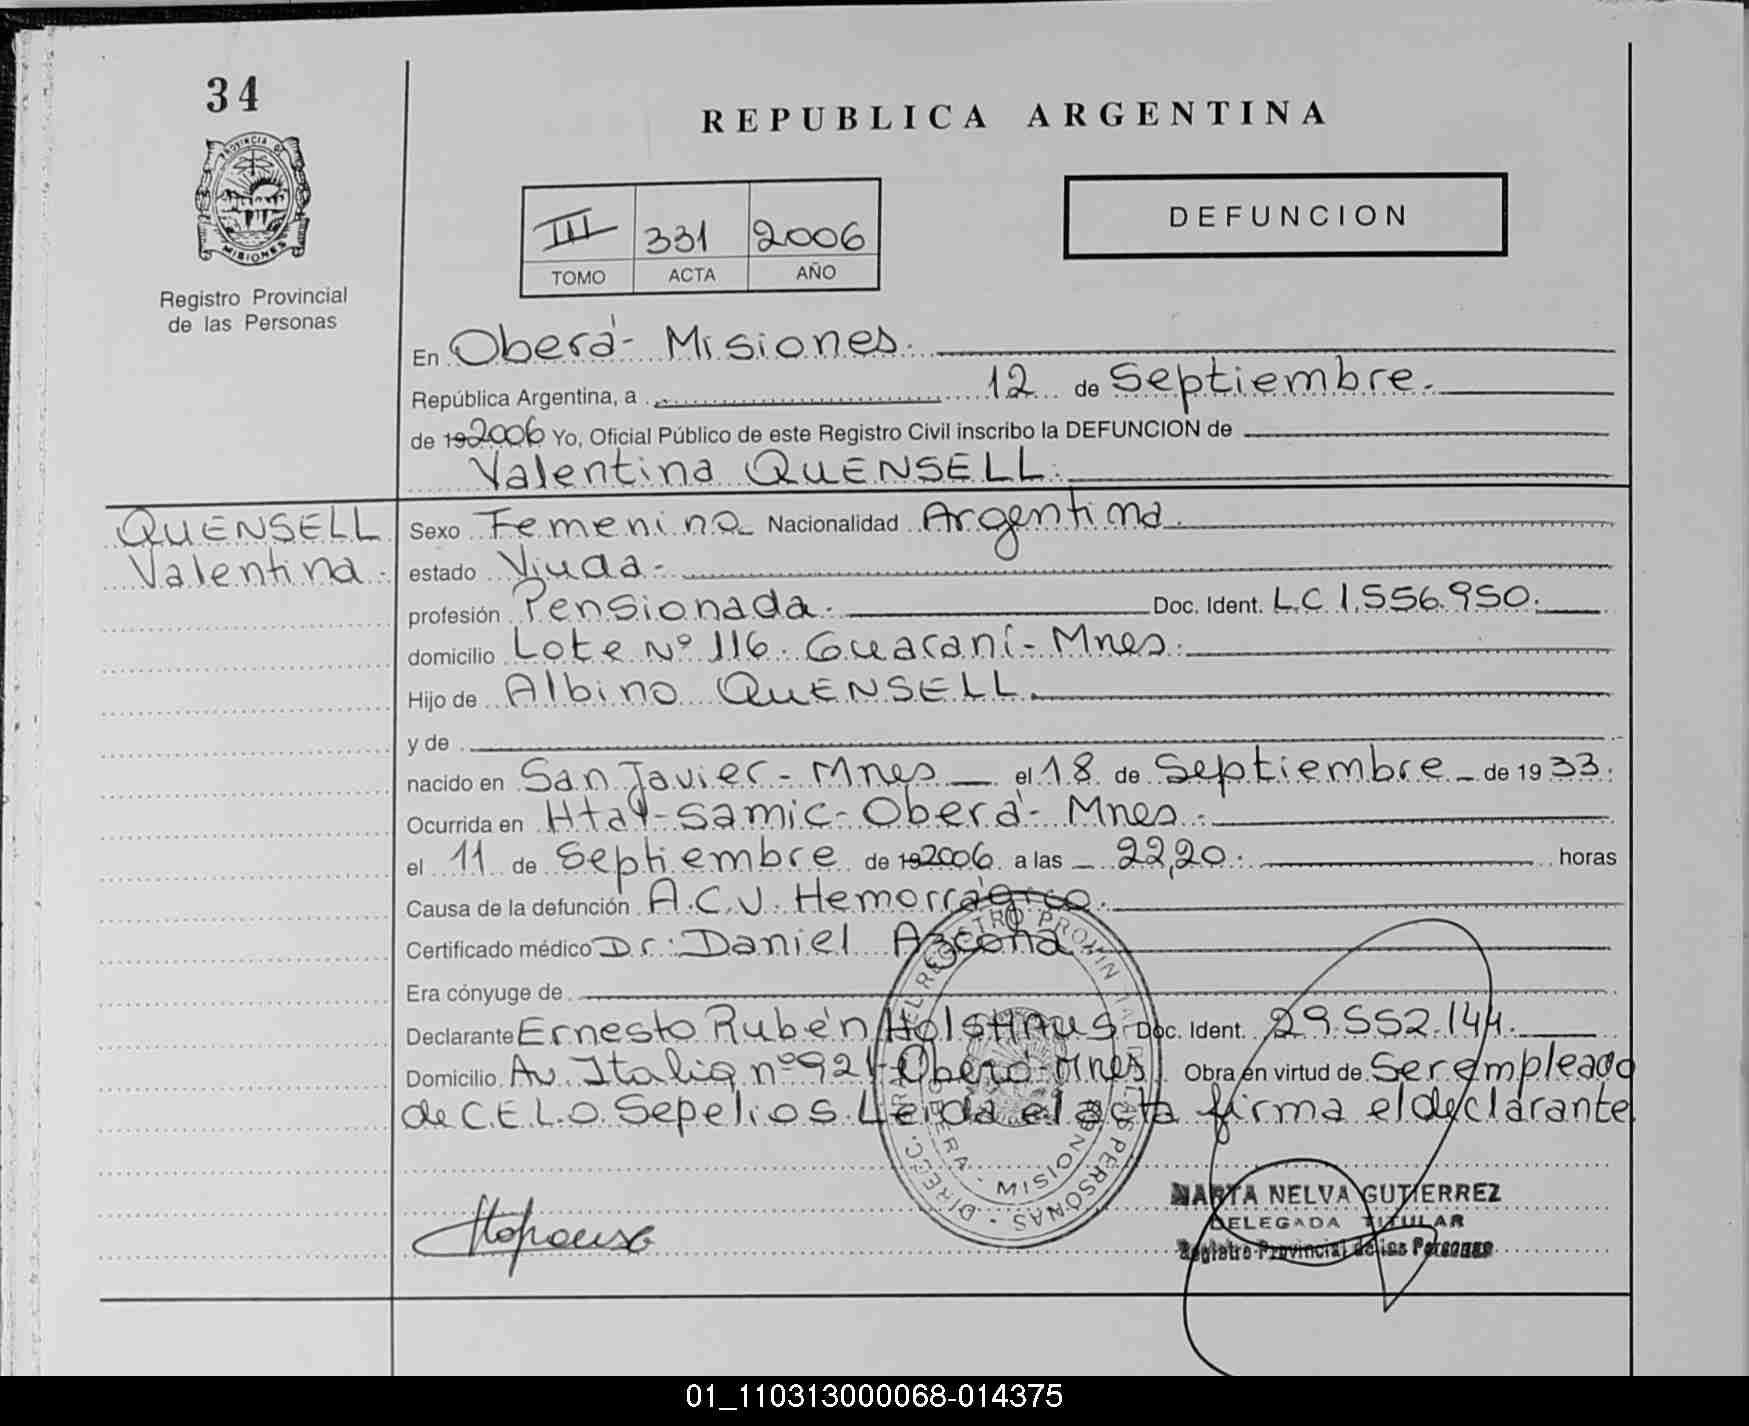 34
REPUBLICA ARGENTINA
PROVINCIA DE
MISIONES
Registro Provincial
de las Personas
III 331 2006
TOMO ACTA AÑO
DEFUNCION
En Oberá - Misiones.
República Argentina, a 12 de Septiembre.
de 192006 Yo, Oficial Público de este Registro Civil inscribo la DEFUNCION de
Valentina QUENSELL.
QUENSELL
Valentina.
Sexo Femenino Nacionalidad Argentina.
estado Viuda.
profesión Pensionada. Doc. Ident. L.C 1.556.950.
domicilio Lote Nº 116. Guaraní - Mnes.
Hijo de Albino QUENSELL.
y de
nacido en San Javier - Mnes el 18 de Septiembre de 19 33.
Ocurrida en Htal - Samic - Oberá - Mnes.
el 11 de Septiembre de 192006 a las 22,20. horas
Causa de la defunción A.C.V. Hemorrágico.
Certificado médico Dr: Daniel Azcona
Era cónyuge de
Declarante Ernesto Rubén Holsthaus Doc. Ident. 29.552.144.
Domicilio Av. Italia nº 921 - Oberá - Mnes Obra en virtud de Ser empleado
de C.E.L.O. Sepelios. Leida el acta firma el declarante
DIRECC. GRAL. DEL REGISTRO PROVINCIAL DE LAS PERSONAS
MISIONES
MARTA NELVA GUTIERREZ
DELEGADA TITULAR
Registro Provincial de las Personas
01_110313000068-014375